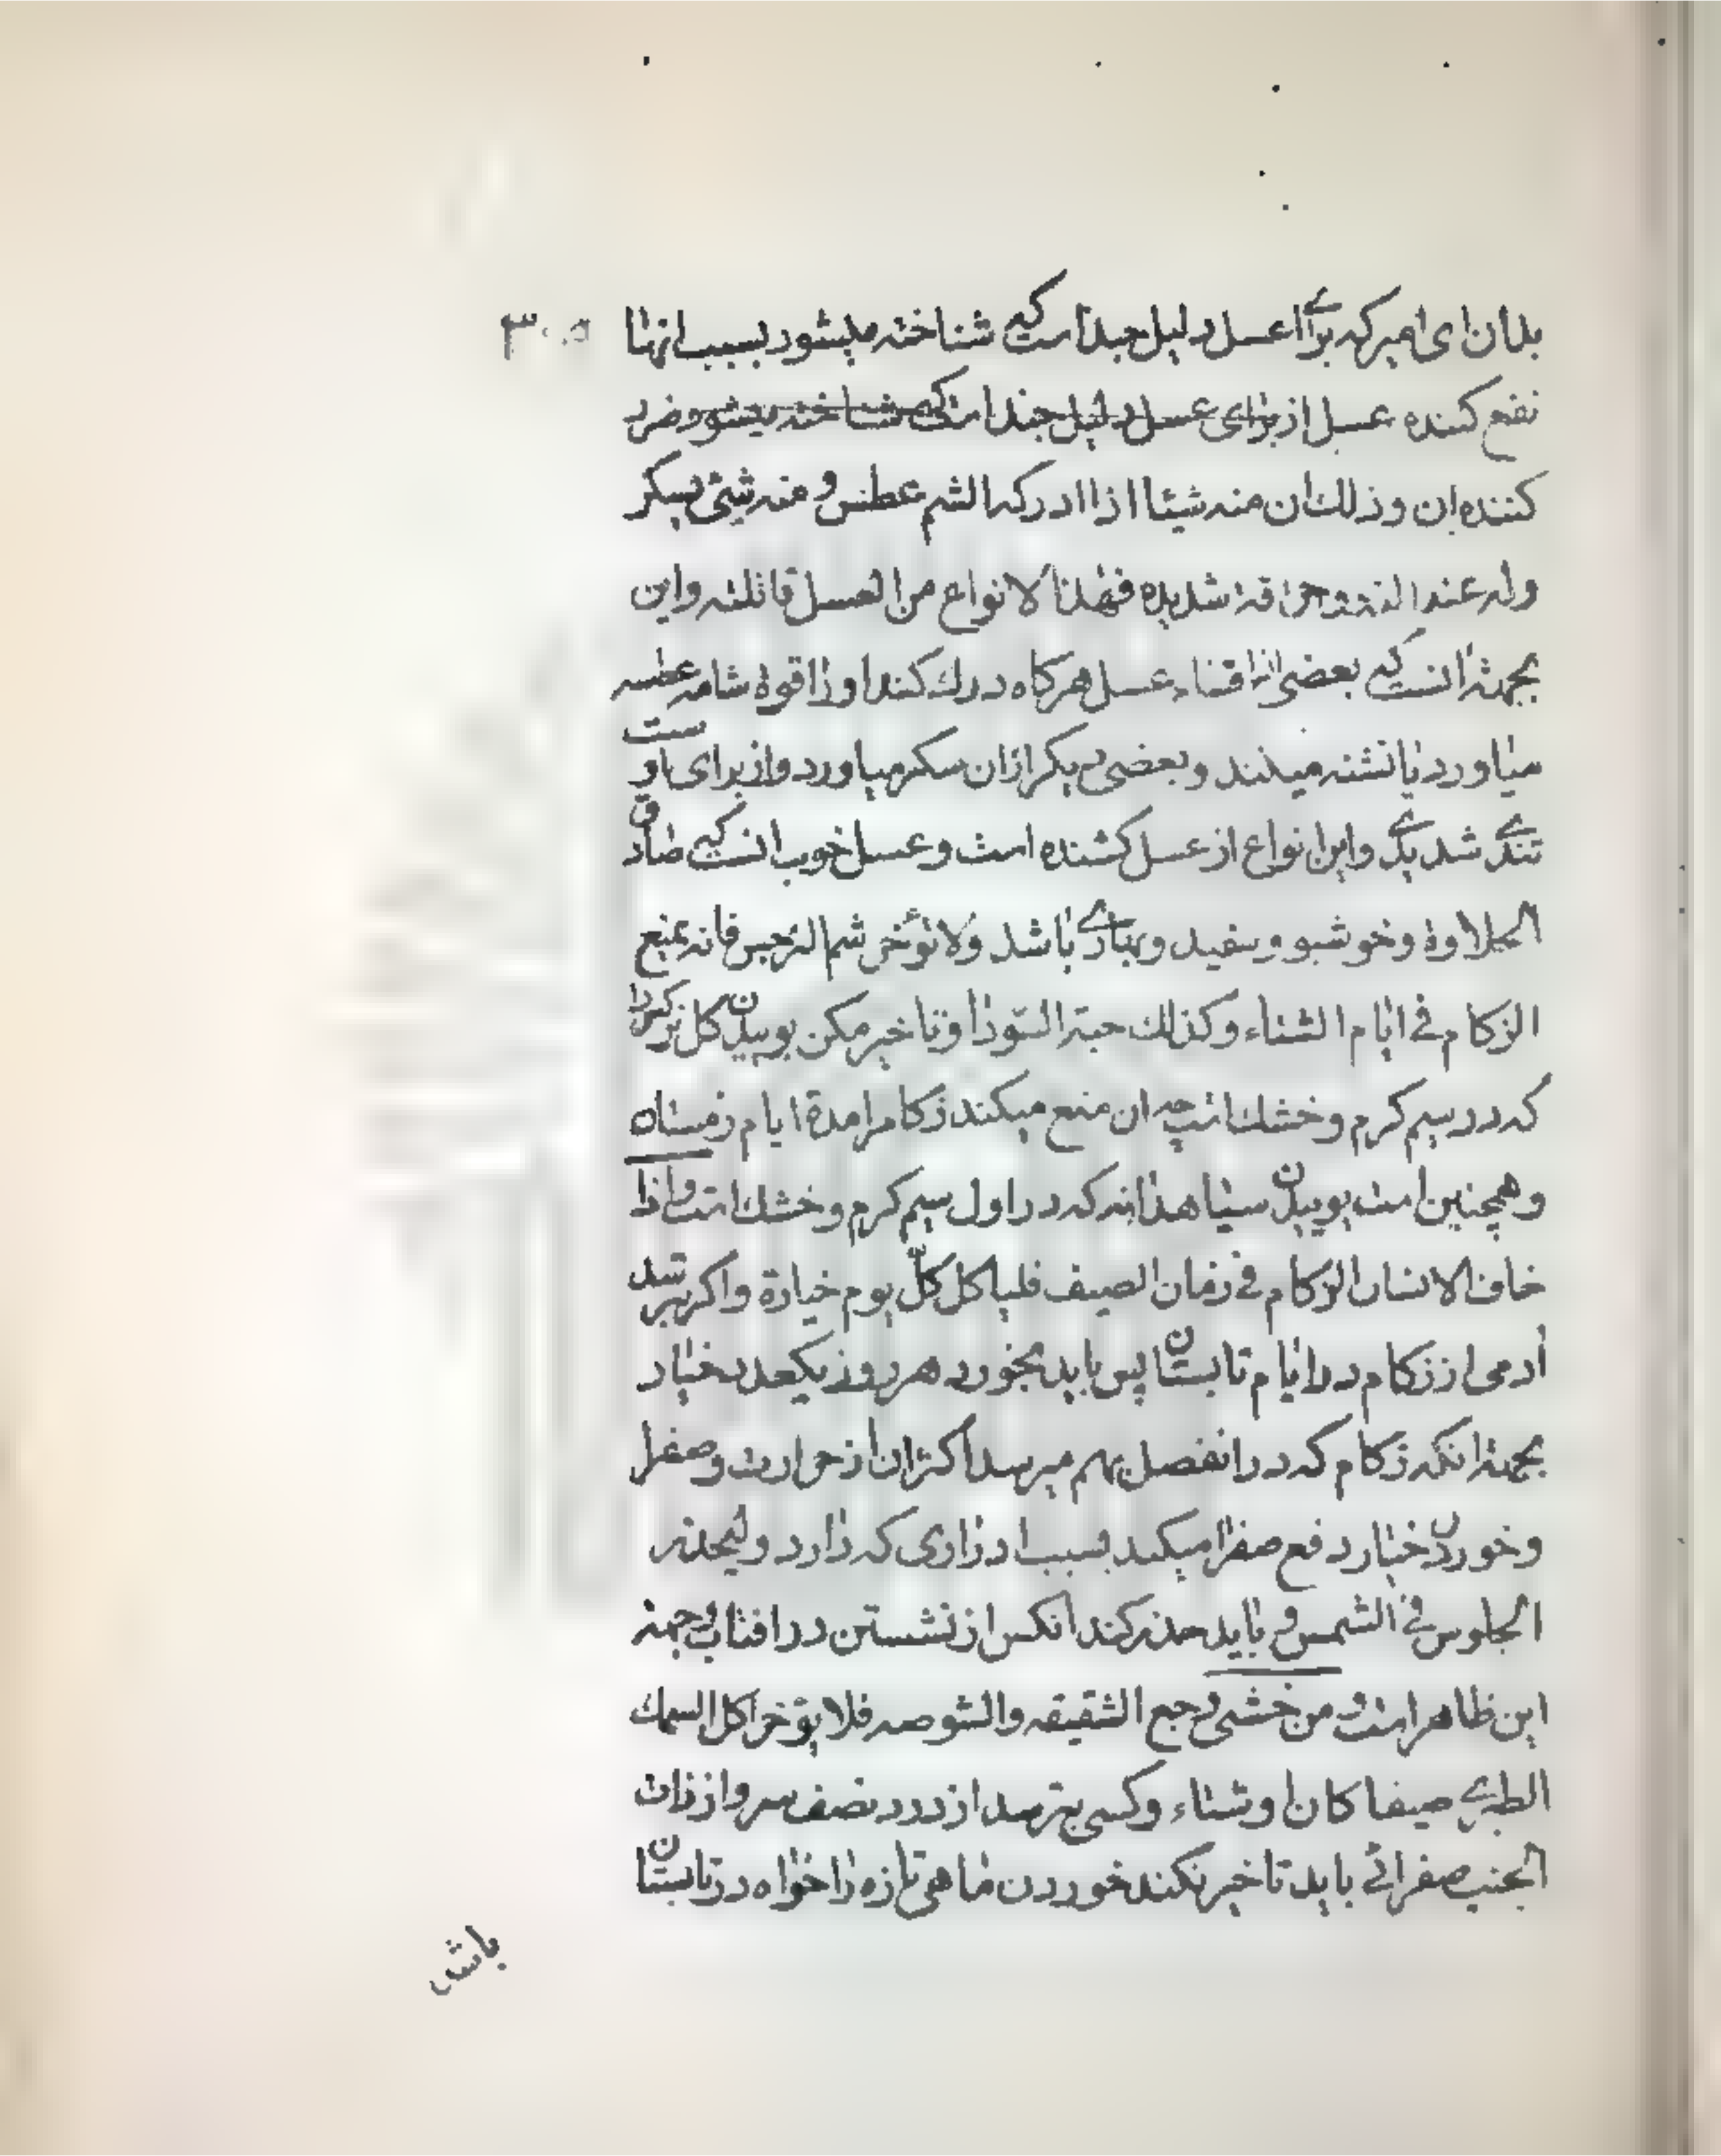 بدان ای امیر که برای عسل دلیل چند است که شناخته میشود بسبب انها ۳۰۵
نفع کننده عسل از برای عسل دلیل چند است که شناخته میشود و ضرر
کننده ان و ذلك ان منه شیئا اذا ادرکه الشم عطس و منه شیئ یسکر
وله عند الذوق حراقة شدیده فهذه الانواع من العسل قاتلته و این
بجهة انست که بعضی از اقسام عسل هرکاه درك کند او را قوة شامه عطسه
میاورد یا تشنه میکند و بعضی دیکر از ان سکر میاورد و از برای او ست
تندی شدیدی و این انواع از عسل کشنده است و عسل خوب انست که صادق
الحلاوة و خوشبو و سفید و بهاری باشد ولا تؤخر شم النرجس فانه یمنع
الزکام فی ایام الشتاء و کذلك حبة السودا و تاخیر مکن بوییدن کل نرکس را
که در سیم کرم و خشك است چه ان منع میکند زکام را مدة ایام زمستان
و همچنین است بوییدن سیاهدانه که در اول سیم کرم و خشك است و اذا
خاف الانسان الزکام فی زمان الصیف فلیاکل کل یوم خیارة و اکر بترسد
آدمی از زکام در ایام تابستان پس باید بخورد هر روز یکعدد خیار
بجهة انکه زکام که در انفصل بهم میرسد اکثر ان از حرارت و صفرا
و خوردن خیار دفع صفرا میکند بسبب ادراری که دارد و لیحذر
الجلوس فی الشمس و باید حذر کند انکس از نشستن در افتاب وجهة
این ظاهر است و من خشی وجع الشقیقه والشوصه فلا یؤخر اکل السمك
الطری صیفا کان او شتاء و کسی بترسد از درد نصف سر و از ذات
الجنب صفرائی باید تاخیر نکند خوردن ماهی تازه را خواه در تابستان
باش